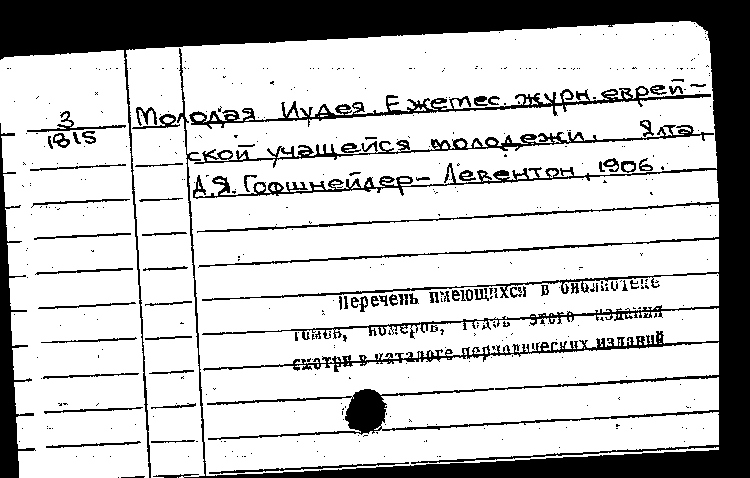 3
1815
Молодая Иудея. Ежемес. журн. еврей-
ской учащейся молодежи. Ялта,
А.Я. Гофшнейдер-Левентон, 1906.
Перечень имеющихся в библиотеке
томов, номеров, годов этого издания
смотри в каталоге периодических изданий